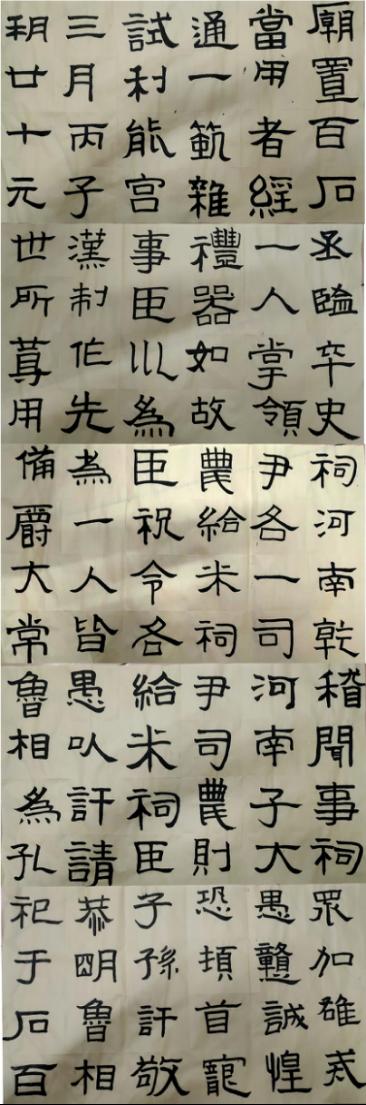 廟置百石
當用者經
通一蓺雜
試利能宫
三月丙子
朔廿十元
丞臨卒史
一人掌領
禮器如故
事臣以為
漢制作先
世所尊用
祠河南乾
尹各一司
農給米祠
臣祝令各
為一人皆
備爵大常
稽聞事祠
河南子大
尹司農則
給米祠臣
愚以訐請
魯相為孔
眾加雒
愚戇誠惶
恐頓首寵
子孫訐敬
恭明魯相
祀于石百